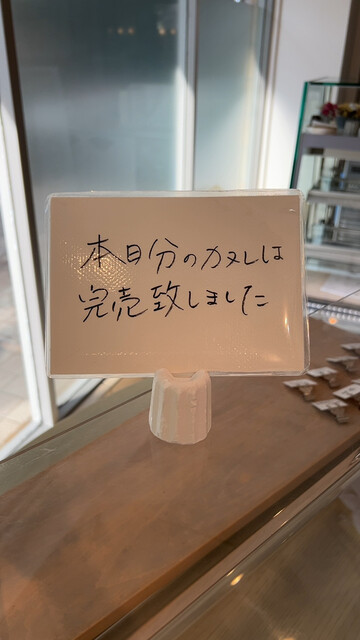 本日分のカヌレは
完売致しました